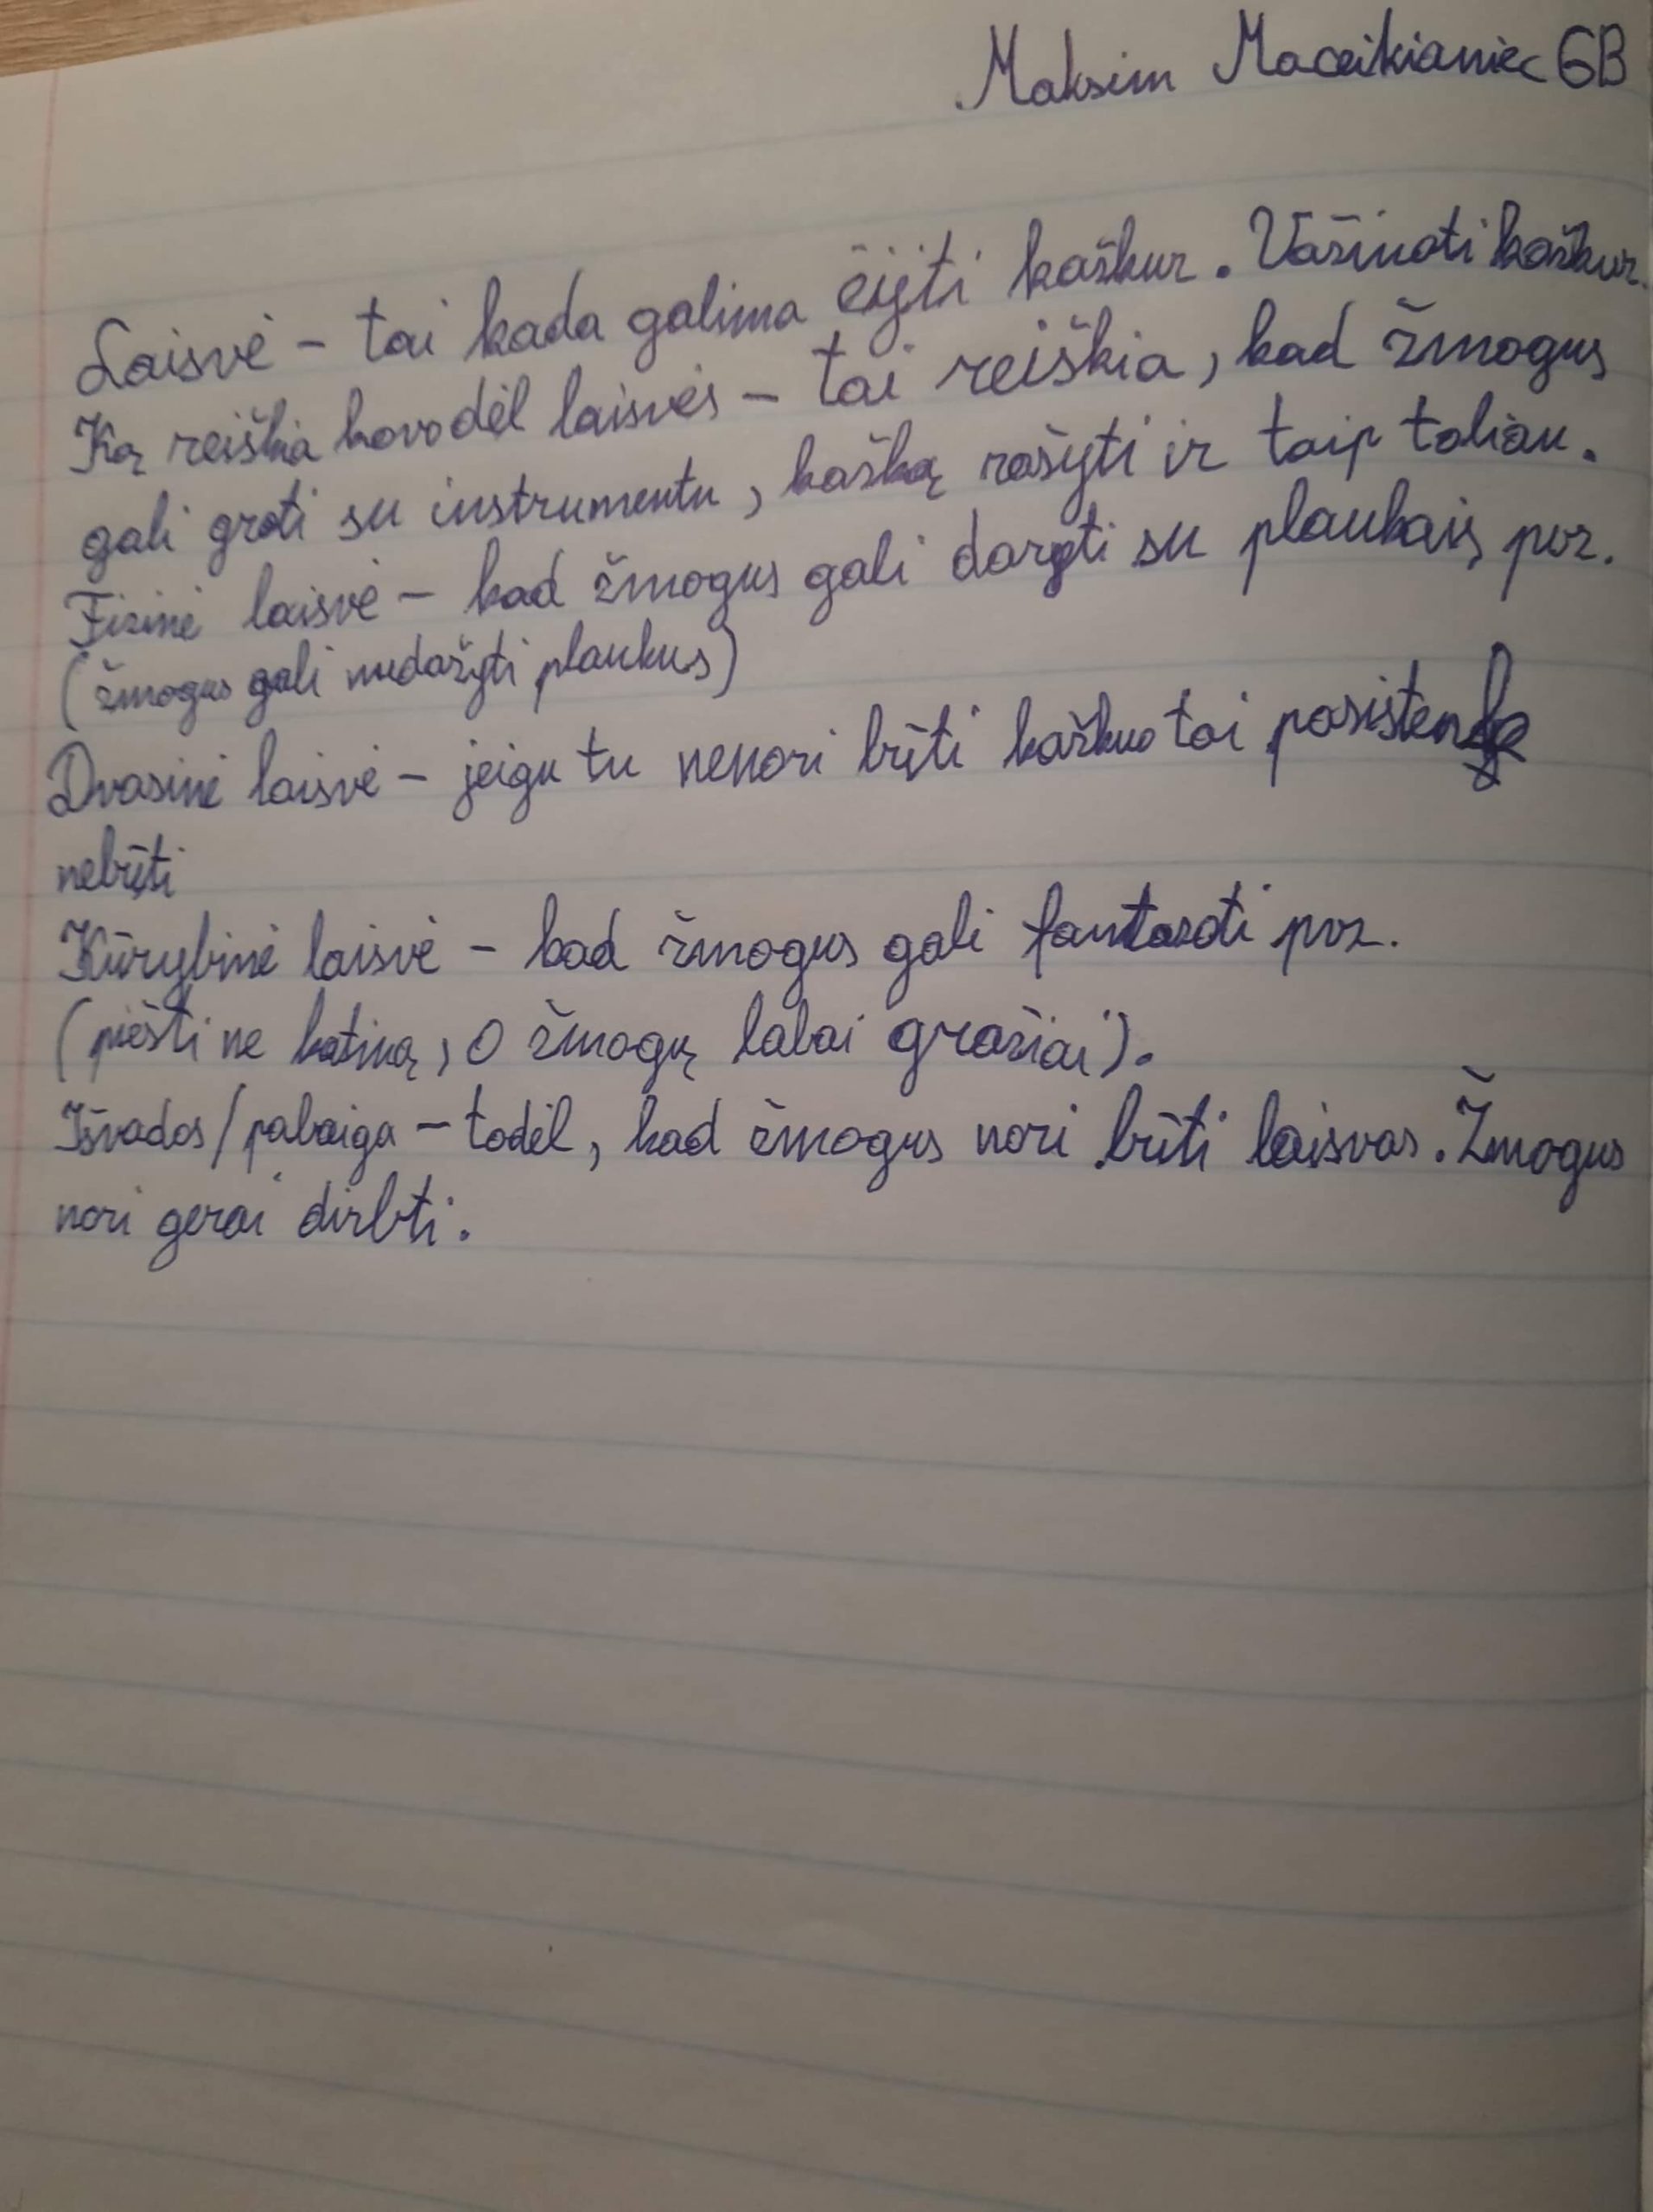 Maksim Maceikianiec 6B
Laisvė – tai kada galima eiyti kažkur. Važinoti kažkur.
Ką reiškia kovo dėl laisvės – tai reiškia, kad žmogus
gali groti su instrumentu, kažką rašyti ir taip toliau.
Fizinė laisvė – kad žmogus gali daryti su plaukais pvz.
(žmogus gali nudažyti plaukus)
Dvasinė laisvė – jeigu tu nenori būti kažkuo tai pasisten
nebūti
Kūrybinė laisvė – kad žmogus gali fantazoti pvz.
(piešti ne katiną, o žmogų labai gražiai).
Išvados/pabaiga – todėl, kad žmogus nori būti laisvas. Žmogus
nori gerai dirbti.